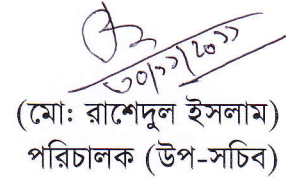 ৩০/১১/২০১১
(মো: রাশেদুল ইসলাম)
পরিচালক (উপ-সচিব)